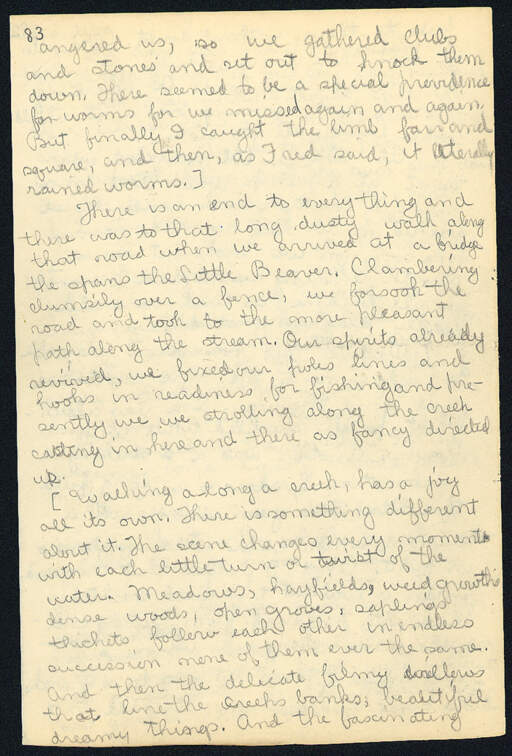 83
angered us, so we gathered clubs
and stones and set out to knock them
down. There seemed to be a special providence
for worms for we missed again and again.
But finally I caught the limb fair and
square, and then, as Fred said, it literally
rained worms.]
There is an end to everything and
there was to that long dusty walk along
that road when we arrived at a bridge
the spans the Little Beaver. Clambering
clumsily over a fence, we forsook the
road and took to the more pleasant
path along the stream. Our spirits already
revived, we fixed our poles lines and
hooks in readiness for fishing and pre-
sently we we strolling along the creek
casting in here and there as fancy directed
us.
[Walking along a creek, has a joy
all its own. There is something different
about it. The scene changes every moment
with each little turn or twist of the
water. Meadows, hayfields, weed growths
dense woods, open groves, saplings
thickets follow each other in endless
succession none of them ever the same.
And then the delicate filmy willows
that line the creeks banks, beautiful
dreamy things. And the fascinating